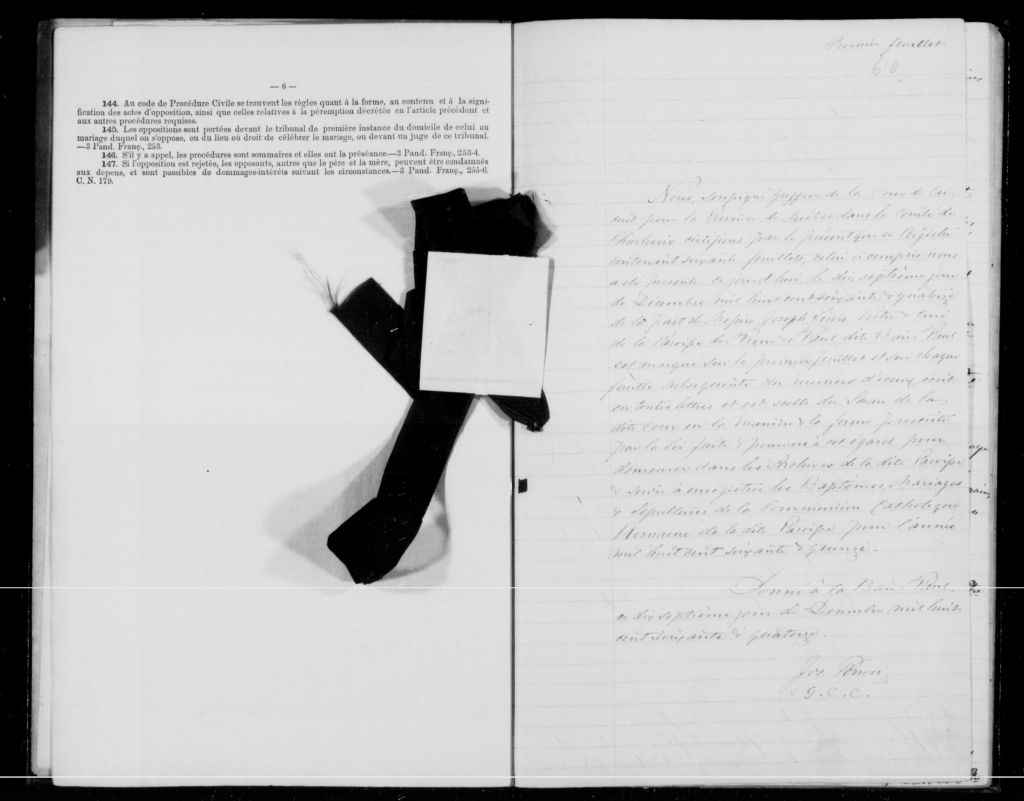 — 6 —
144. Au code de Procédure Civile se trouvent les règles quant à la forme, au contenu et à la signi-
fication des actes d'opposition, ainsi que celles relatives à la péremption décrétée en l'article précédent et
aux autres procédures requises.
145. Les oppositions sont portées devant le tribunal de première instance du domicile de celui au
mariage duquel on s'oppose, ou du lieu où droit de célébrer le mariage, ou devant un juge de ce tribunal.
—3 Pand. Franç., 253.
146. S'il y a appel, les procédures sont sommaires et elles ont la préséance.—3 Pand. Franç., 253-4.
147. Si l'opposition est rejetée, les opposants, autres que le père et la mère, peuvent être condamnés
aux dépens, et sont passibles de dommages-intérêts suivant les circonstances.—3 Pand. Franç., 255-6.
C. N. 179.
Premier feuillet
60
Nous, soussigné Greffier de la Cour de Cir-
cuit pour la Province de Québec dans le Comté de
Charlevoix certifions par le présent que ce Régistre
contenant soixante feuillets, celui ci compris nous
a été présenté ce jourd'hui, le dix septième jour
de Décembre mil huit cent soixante & quatorze
de la part de Messire Joseph curé
de la Paroisse de St Pierre & St Paul dite Baie St Paul
est marqué sur le premier feuillet et sur chaque
feuille subséquente du numéro d'iceux écrit
en toutes lettres et est scellé du Sceau de la
dite Cour en la manière & la forme prescrite
par la loi faite & pourvue à cet égard pour
demeurer dans les Archives de la dite Paroisse
& servir à enregistrer les Baptêmes, Mariages
& Sépultures de la Communion Catholique
Romaine de la dite Paroisse pour l'année
mil huit cent soixante & quinze.
Donné à la Baie St Paul
ce dix septième jour de Décembre mil huit
cent soixante & quatorze.
Jos. Perron
G. C. C.